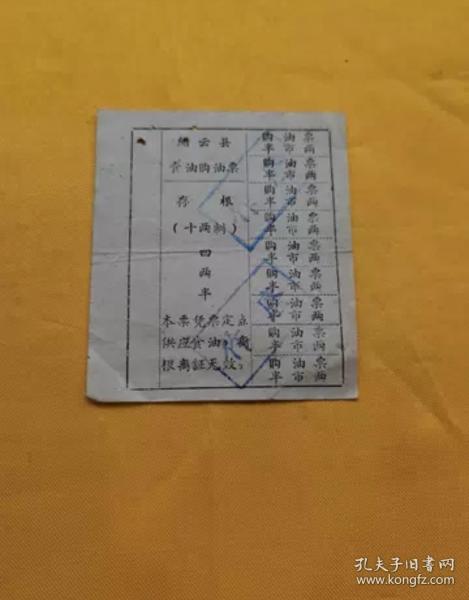 缙云县
食油购油票
存 根
(十两制)
四
两
半
本票凭票定点
供应食油,
根离证无效。
购油票
半市两
购油票
半市两
购油票
半市两
购油票
半市两
购油票
半市两
购油票
半市两
购油票
半市两
购油票
半市两
购油票
半市两
孔夫子旧书网
https://www.kongfz.com